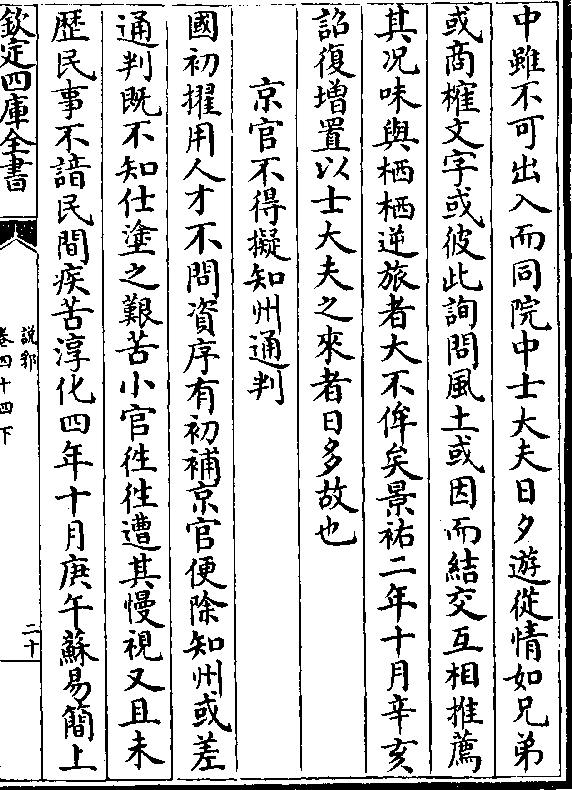 中雖不可出入而同院中士大夫日夕遊從情如兄弟
或商榷文字或彼此詢問風土或因而結交互相推薦
其况味與栖栖逆旅者大不侔矣景祐二年十月辛亥
詔復増置以士大夫之來者日多故也
京官不得擬知州通判
國初擢用人才不問資序有初補京官便除知州或差
通判既不知仕塗之艱苦小官徃徃遭其慢視又且未
歴民事不諳民間疾苦淳化四年十月庚午蘇易簡上
欽定四庫全書
說郛
卷四十四下
二十